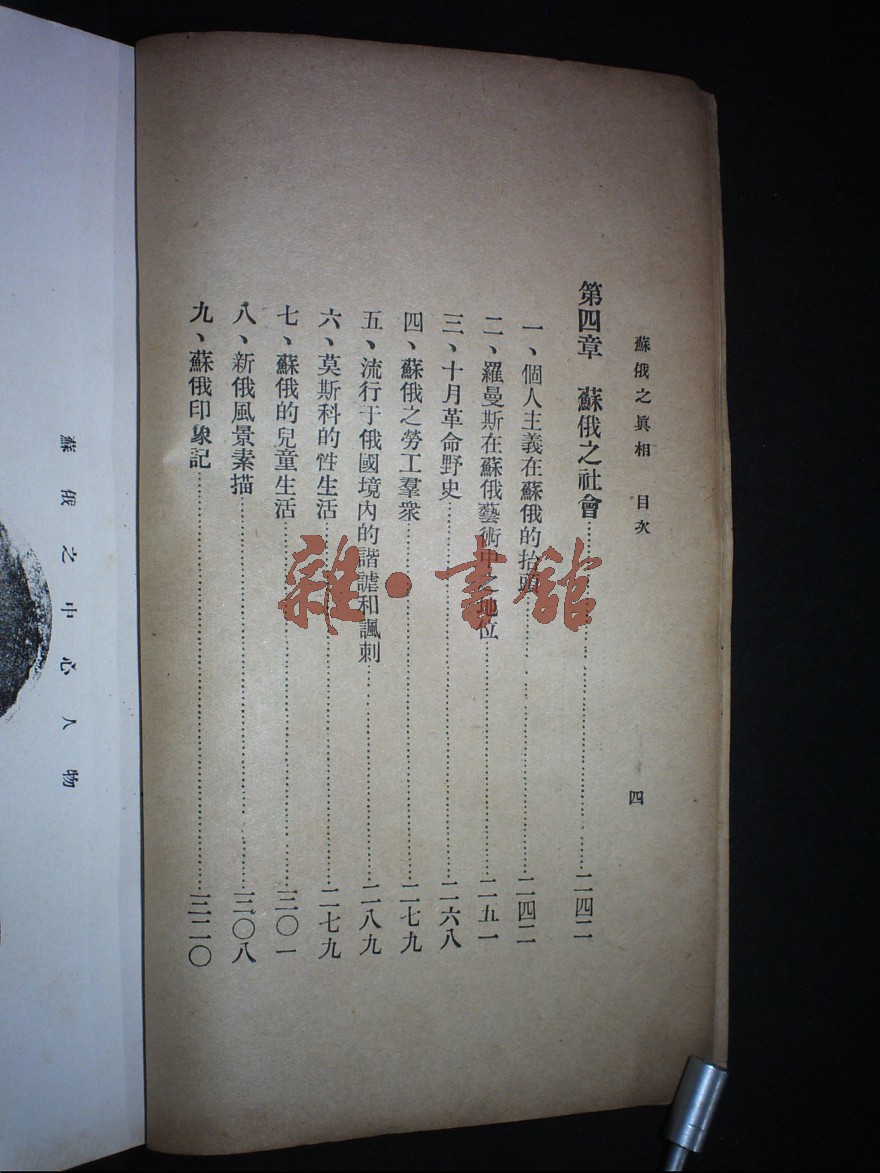 蘇俄之眞相 目次 四
第四章 蘇俄之社會……二四二
一、個人主義在蘇俄的抬頭……二四二
二、羅曼斯在蘇俄藝術中之地位……二五一
三、十月革命野史……二六八
四、蘇俄之勞工羣衆……二七九
五、流行于俄國境內的諧謔和諷刺……二八九
六、莫斯科的性生活……二七九
七、蘇俄的兒童生活……三〇一
八、新俄風景素描……三〇八
九、蘇俄印象記……三二〇
蘇俄之中心人物
雜·書館